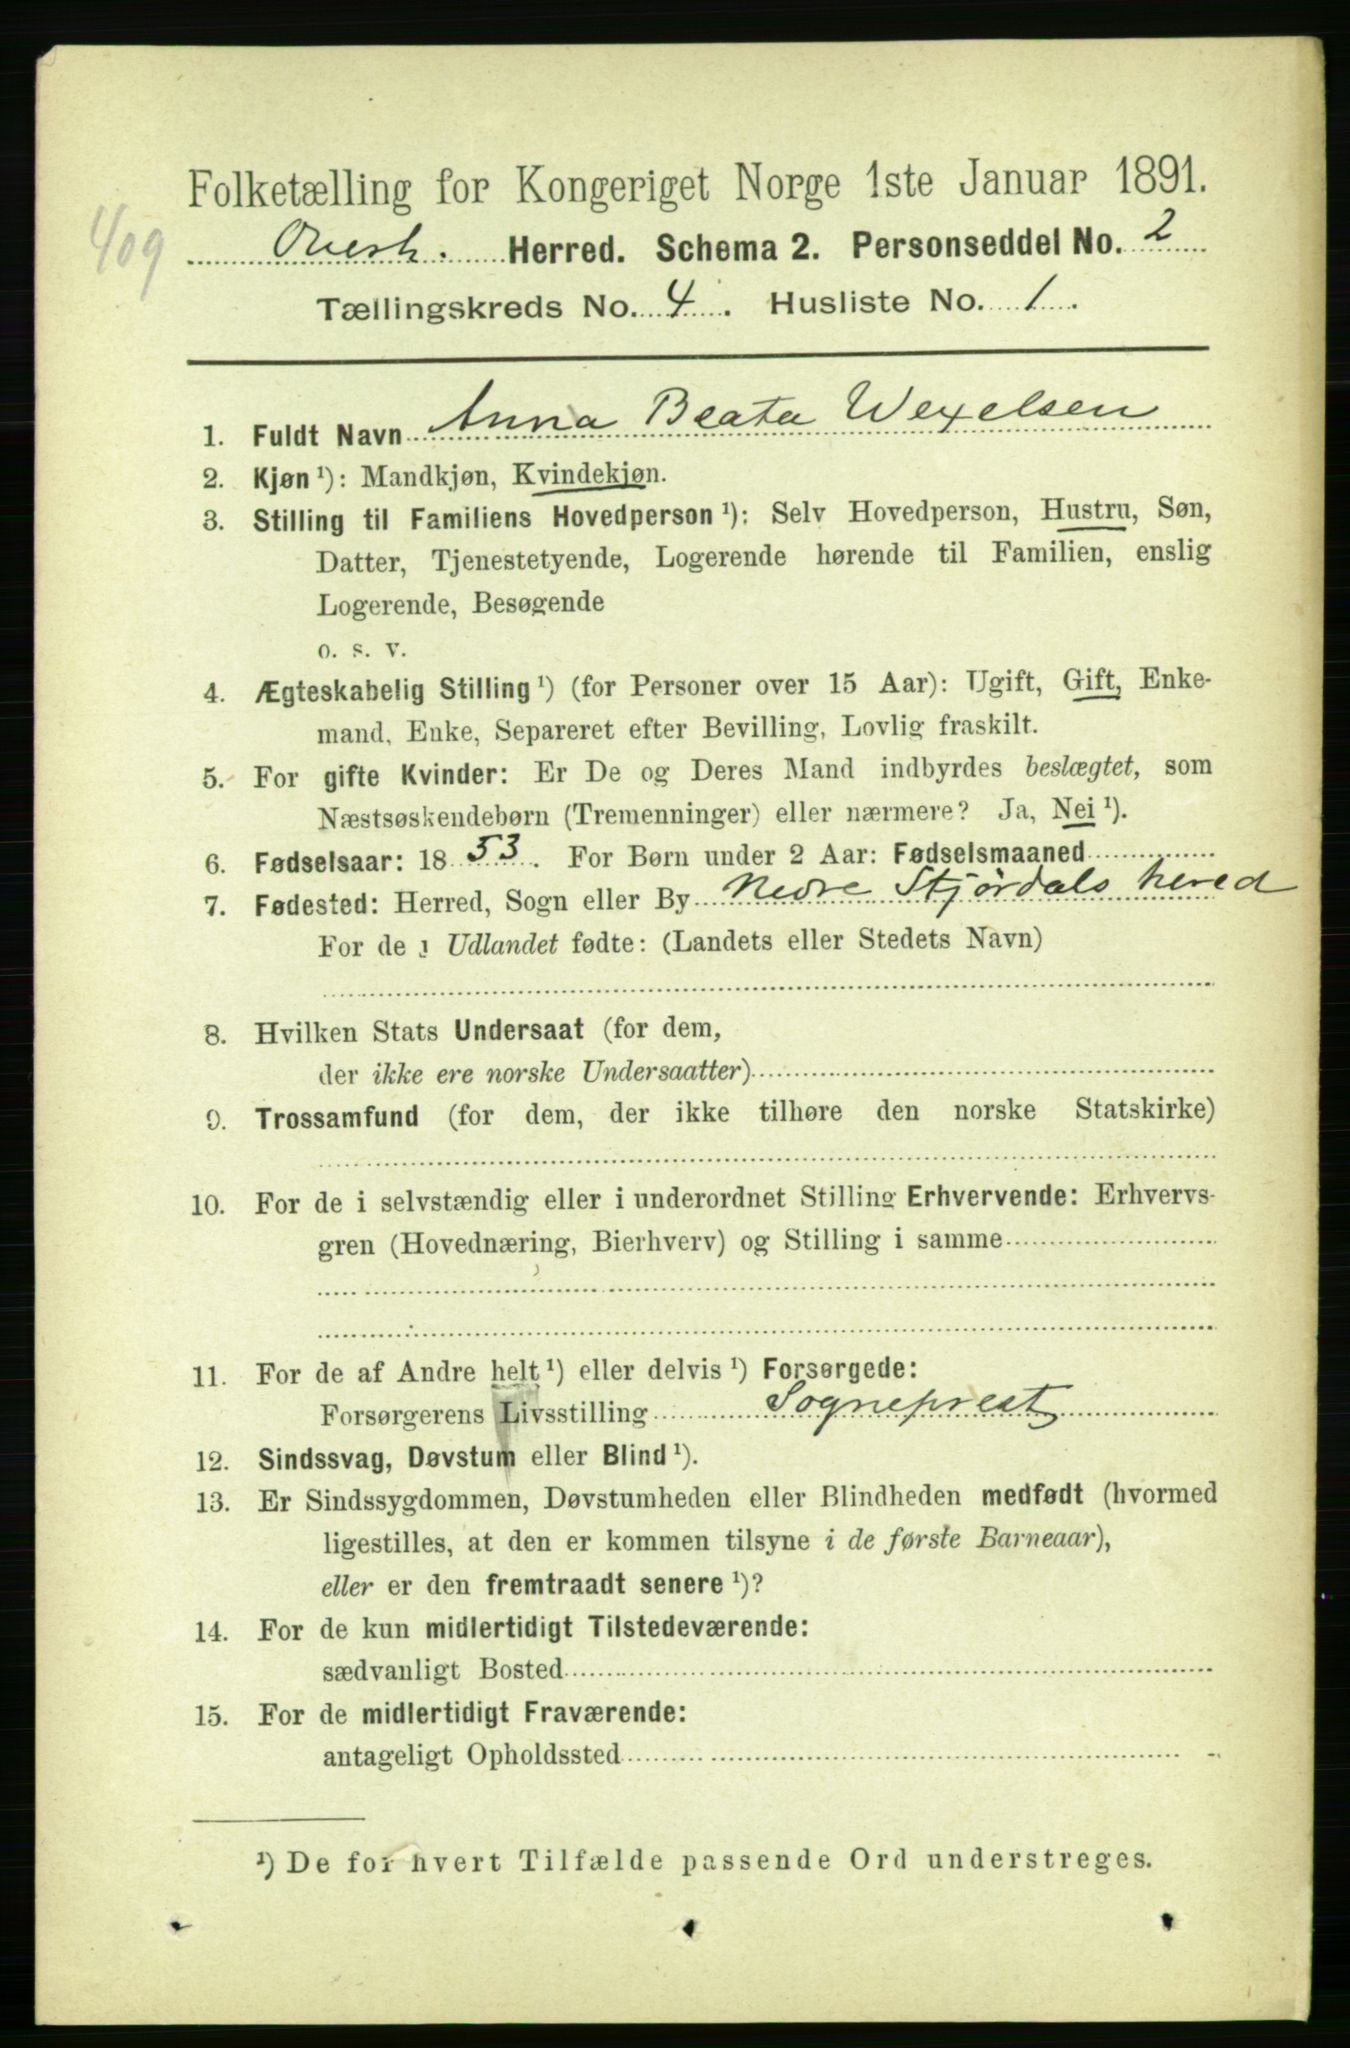 Folketælling for Kongeriget Norge 1ste Januar 1891.
409
Overh. Herred. Schema 2. Personseddel No. 2
Tællingskreds No. 4. Husliste No. 1.
1. Fuldt Navn Anna Beata Wexelsen
2. Kjøn ¹): Mandkjøn, Kvindekjøn.
3. Stilling til Familiens Hovedperson ¹): Selv Hovedperson, Hustru, Søn,
Datter, Tjenestetyende, Logerende hørende til Familien, enslig
Logerende, Besøgende
o. s. v.
4. Ægteskabelig Stilling ¹) (for Personer over 15 Aar): Ugift, Gift, Enke-
mand, Enke, Separeret efter Bevilling, Lovlig fraskilt.
5. For gifte Kvinder: Er De og Deres Mand indbyrdes beslægtet, som
Næstsøskendebørn (Tremenninger) eller nærmere? Ja, Nei ¹).
6. Fødselsaar: 1853. For Børn under 2 Aar: Fødselsmaaned
7. Fødested: Herred, Sogn eller By Nedre Stjørdals hered
For de i Udlandet fødte: (Landets eller Stedets Navn)
8. Hvilken Stats Undersaat (for dem,
der ikke ere norske Undersaatter)
9. Trossamfund (for dem, der ikke tilhøre den norske Statskirke)
10. For de i selvstændig eller i underordnet Stilling Erhvervende: Erhvervs-
gren (Hovednæring, Bierhverv) og Stilling i samme
11. For de af Andre helt ¹) eller delvis ¹) Forsørgede:
Forsørgerens Livsstilling Sogneprest
12. Sindssvag, Døvstum eller Blind ¹).
13. Er Sindssygdommen, Døvstumheden eller Blindheden medfødt (hvormed
ligestilles, at den er kommen tilsyne i de første Barneaar),
eller er den fremtraadt senere ¹)?
14. For de kun midlertidigt Tilstedeværende:
sædvanligt Bosted
15. For de midlertidigt Fraværende:
antageligt Opholdssted
¹) De for hvert Tilfælde passende Ord understreges.